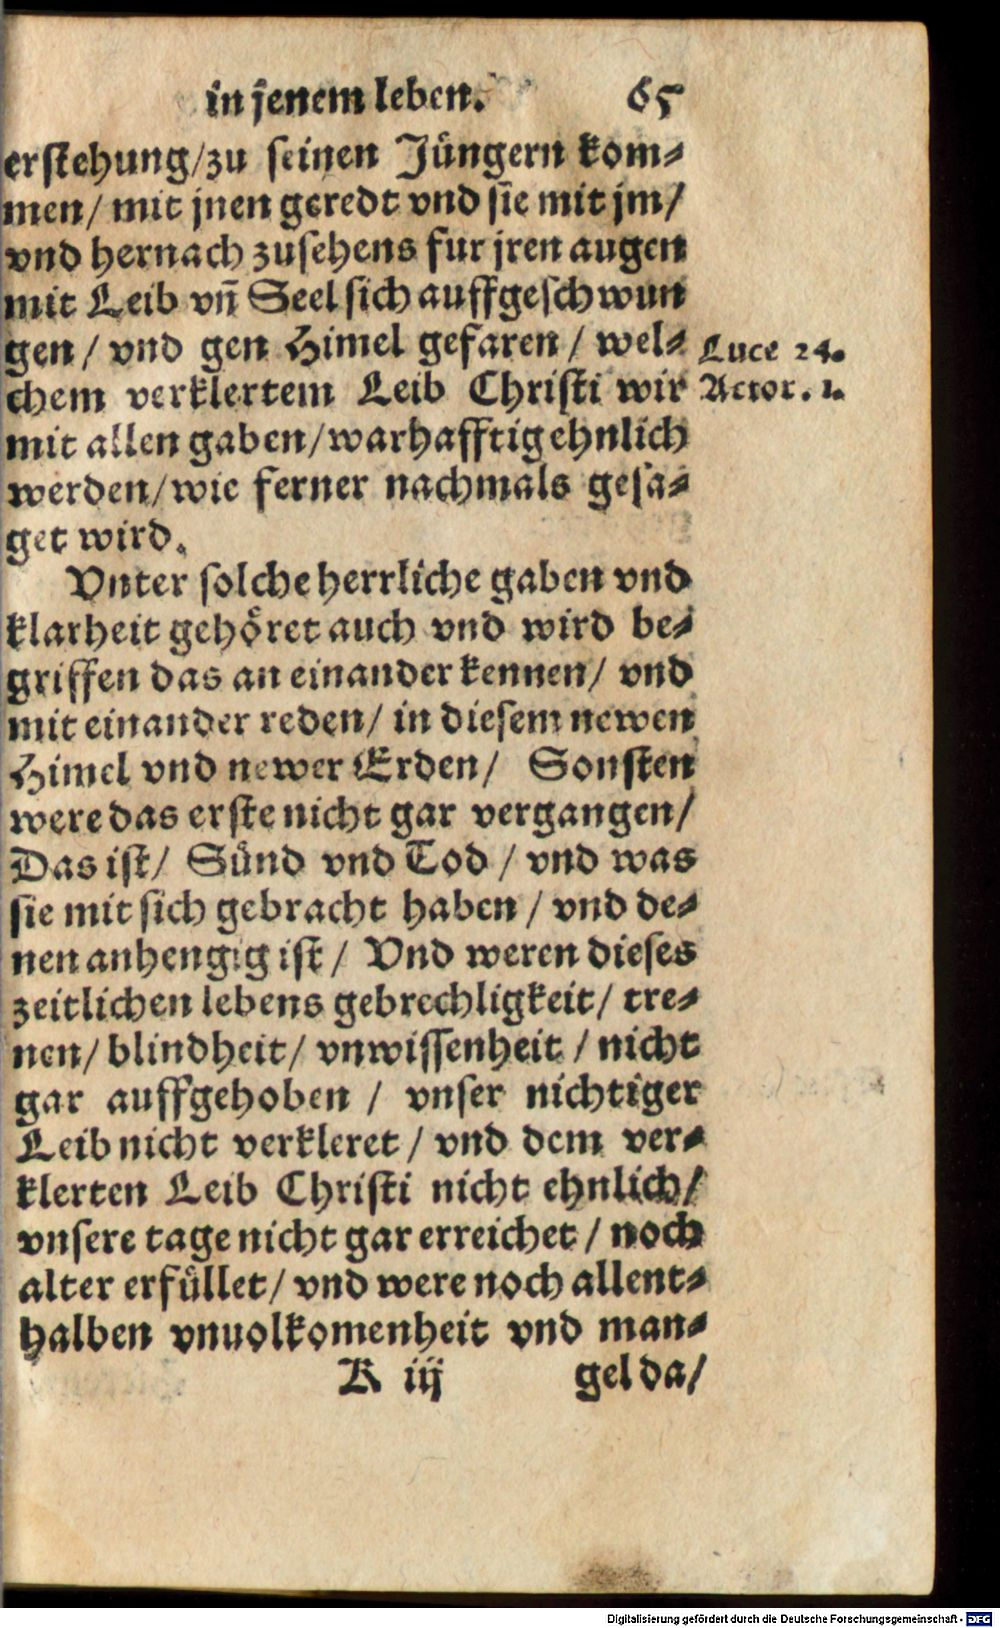 in jenem leben. 65
erstehung/zu seinen Jüngern kom-
men/ mit jnen geredt vnd sie mit jm/
vnd hernach zusehens fur jren augen
mit Leib vñ Seel sich auffgeschwun
gen/ vnd gen Himel gefaren/ wel-
Luce 24.
chem verklertem Leib Christi wir
Actor. 1.
mit allen gaben/warhafftig ehnlich
werden/wie ferner nachmals gesa-
get wird.
Vnter solche herrliche gaben vnd
klarheit gehöret auch vnd wird be-
griffen das an einander kennen/ vnd
mit einander reden/ in diesem newen
Himel vnd newer Erden/ Sonsten
were das erste nicht gar vergangen/
Das ist/ Sünd vnd Tod/ vnd was
sie mit sich gebracht haben/ vnd de-
nen anhengig ist/ Vnd weren dieses
zeitlichen lebens gebrechligkeit/ tre-
nen/ blindheit/ vnwissenheit/ nicht
gar auffgehoben/ vnser nichtiger
Leib nicht verkleret/ vnd dem ver-
klerten Leib Christi nicht ehnlich/
vnsere tage nicht gar erreichet/ noch
alter erfüllet/ vnd were noch allent-
halben vnuolkomenheit vnd man-
K iij gel da/
Digitalisierung gefördert durch die Deutsche Forschungsgemeinschaft - DFG